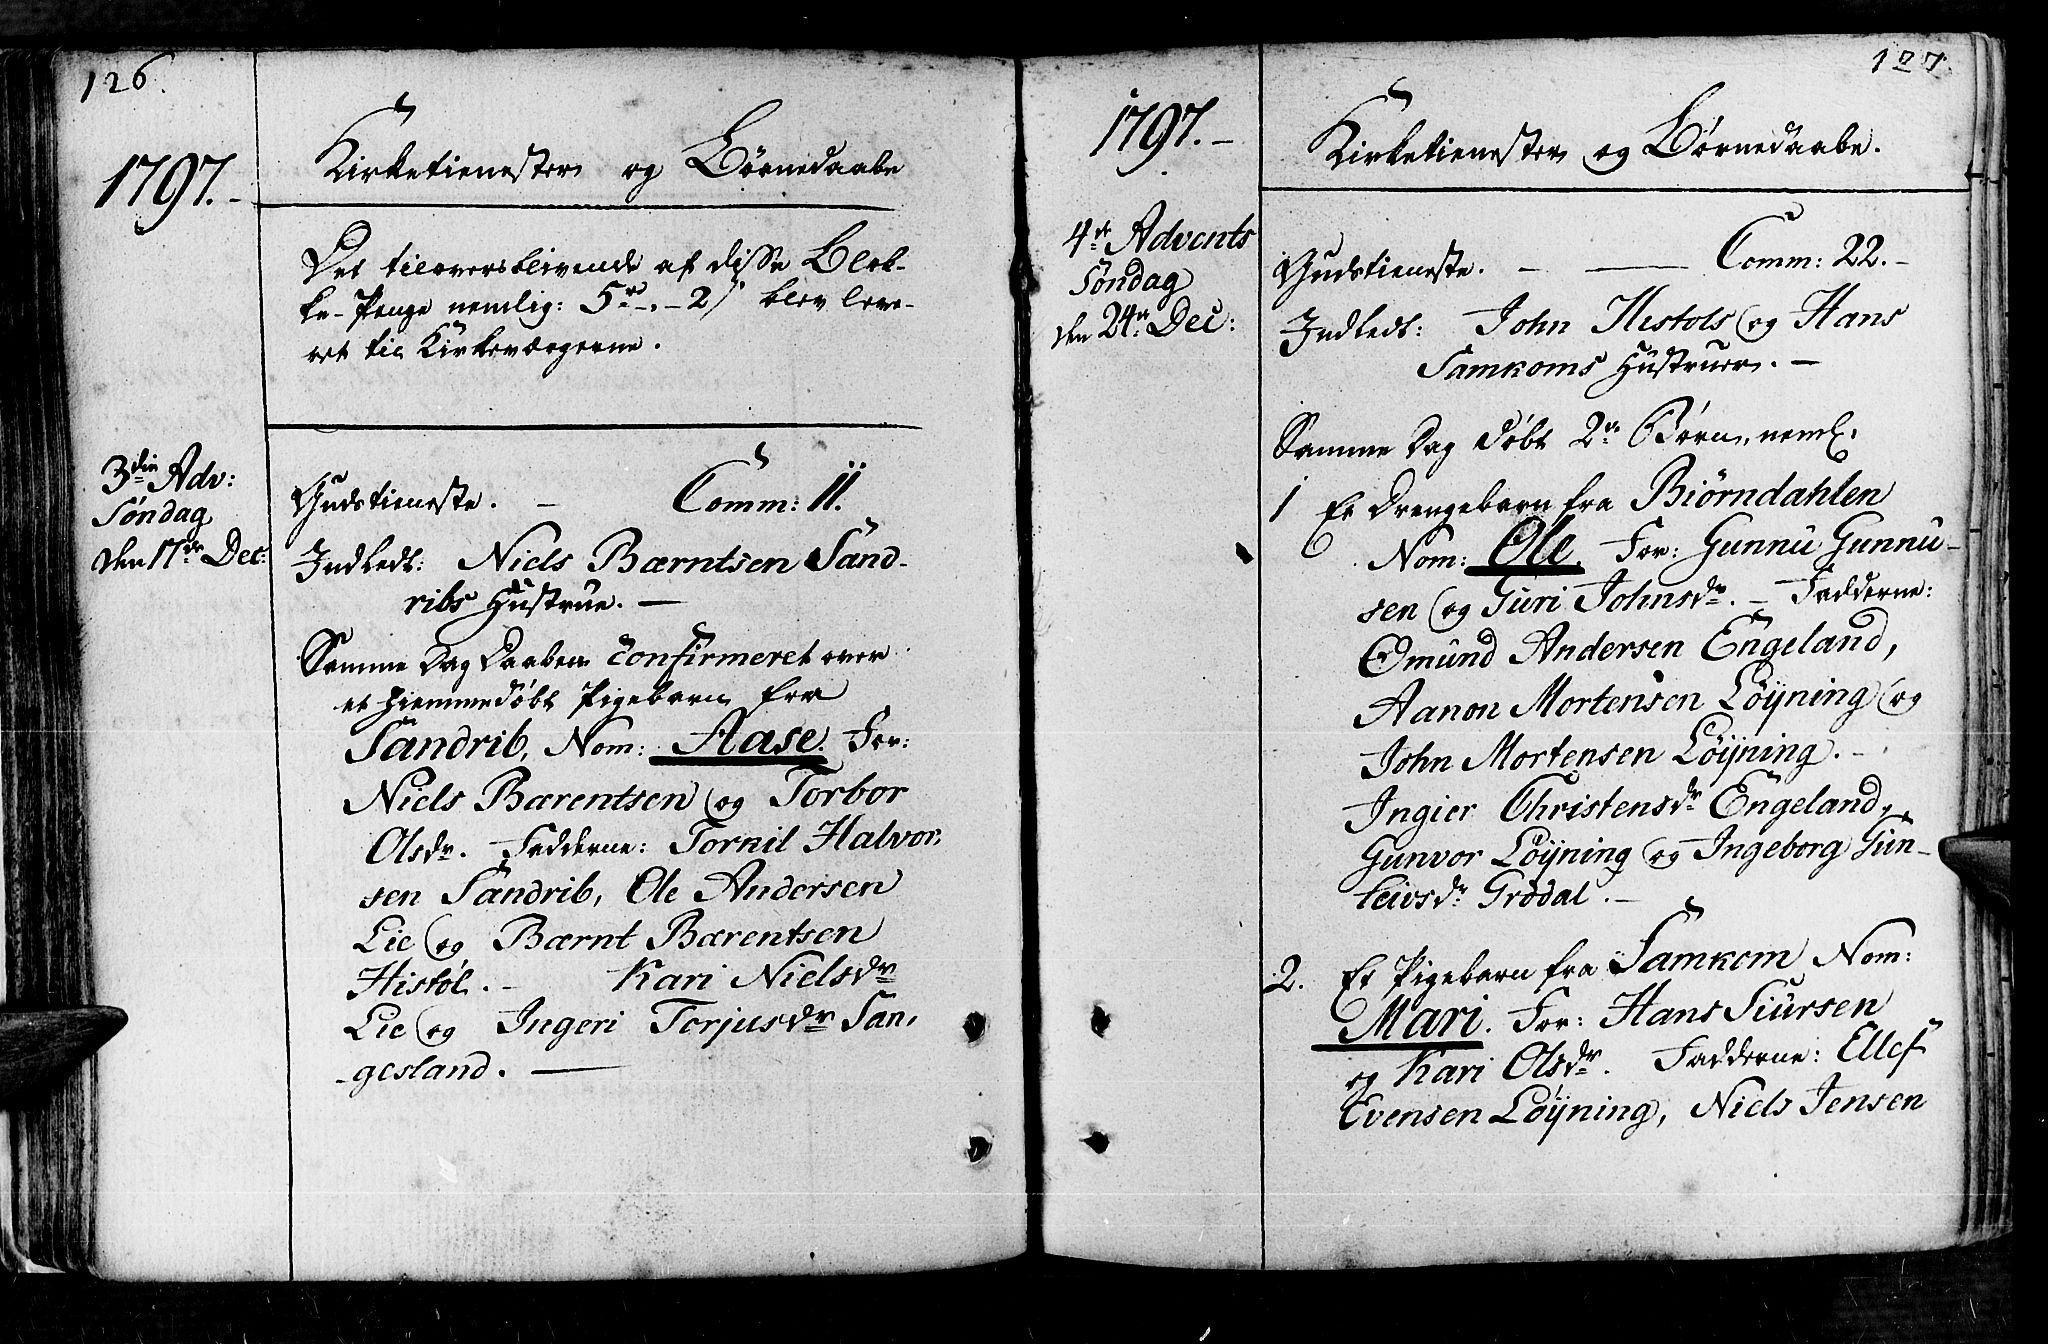 126.
1797.-
Kirketienester og Børnedaabe
Det tiloversblivende af disse Blok-
ke-Penge nemlig: 5 rd. - 2 s blev leve-
ret til Kirkeværgerne.
3die Adv:
Søndag
den 17de Dec:
Gudstieneste. - Comm: 11.
Indledt: Niels Bærntsen Sand-
ribs Hustrue. -
Samme Dag Daaben confirmeret over
et hjemmedøbt Pigebarn fra
Sandrib, Nom: Aase. For:
Niels Bærentsen og Torbor
Olsdr. Fadderne: Torkil Halvor-
sen Sandrib, Ole Andersen
Lie og Bærnt Bærentsen
Histøl. - Kari Nielsdr
Lie og Ingeri Torjusdr San-
-gesland. -
127.
1797.-
Kirketienester og Børnedaabe.
4de Advents
Søndag
den 24de Dec:
Gudstieneste. - - Comm: 22. -
Indledt: John Hestols og Hans
Samkoms Hustruer. -
Samme Dag døbt 2de Børn, neml.
1 Et Drengebarn fra Biørndahlen
Nom: Ole. For: Gunnu Gunnu-
sen og Guri Johnsdr. - Fadderne:
Omund Andersen Engeland,
Aanon Mortensen Løyning og
John Mortensen Løyning. -
Ingier Christensdr Engeland,
Gunvor Løyning og Ingeborg Gun-
leivsdr Grødal. -
2. Et Pigebarn fra Samkom Nom:
Mari. For: Hans Siursen
og Kari Olsdr. Fadderne: Ellef
Evensen Løyning, Niels Jensen